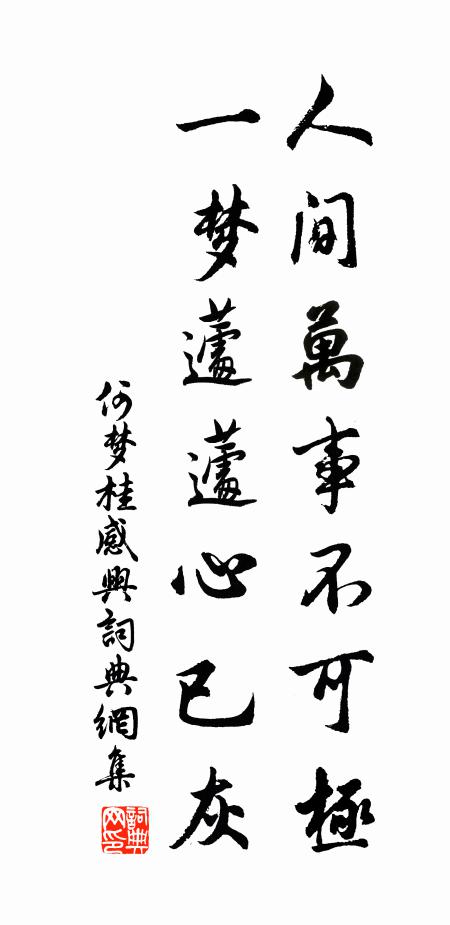 人间萬事不可極
一梦蘧蘧心已灰
何梦桂感興詞典網集
詞典网印